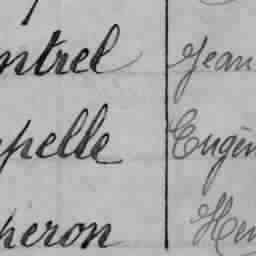 ntrel Jean
pelle Eugèn
heron Hen